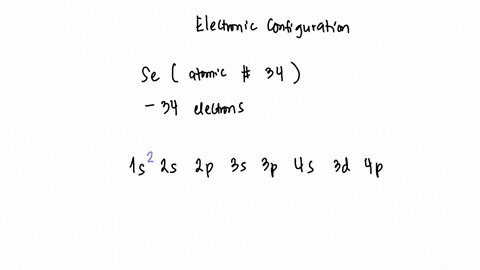 Electronic Configuration
Se ( atomic # 34 )
- 34 electrons
1s² 2s 2p 3s 3p 4s 3d 4p